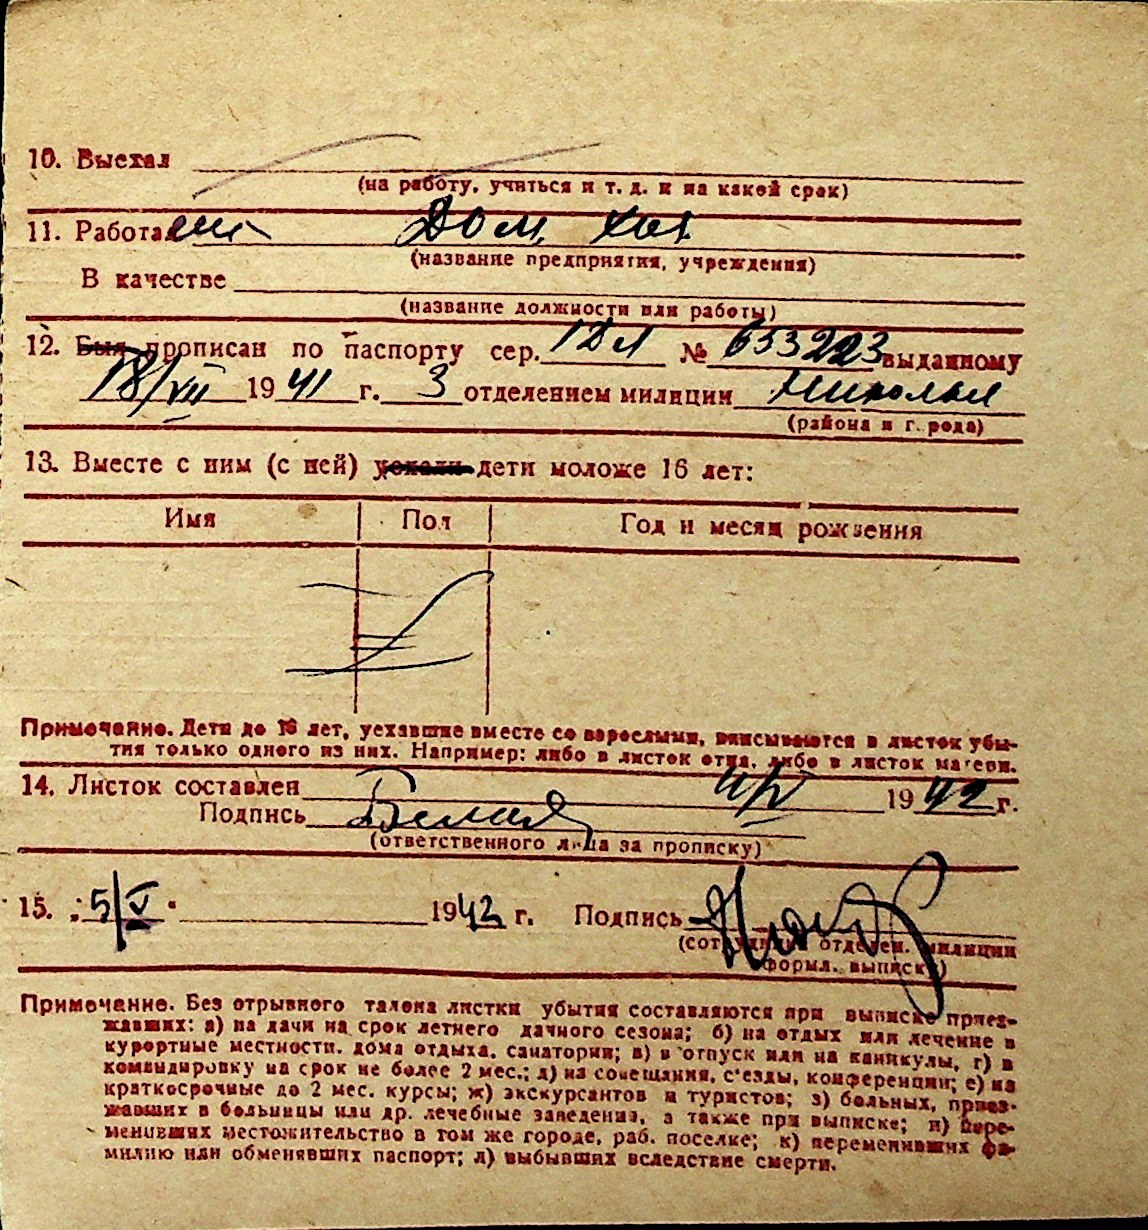 10. Выехал
(на работу, учиться и т. д. и на какой срок)
11. Работа Дом. хоз.
(название предприятия, учреждения)
В качестве
(название должности или работы)
12. Был прописан по паспорту сер. № 653223 выданному
18/VII 1941 г. 3 отделением милиции
(района и города)
13. Вместе с ним (с ней) уехали дети моложе 16 лет:
Имя Пол Год и месяц рождения
Примечание. Дети до 16 лет, уехавшие вместе со взрослыми, вписываются в листок убы-
тия только одного из них. Например: либо в листок отца, либо в листок матери.
14. Листок составлен 4/V 1942 г.
Подпись
(ответственного лица за прописку)
15. 5/V 1942 г. Подпись
(сотрудник отделен. милиции
формл. выписку)
Примечание. Без отрывного талона листки убытия составляются при выписке приез-
жавших: а) на дачи на срок летнего дачного сезона; б) на отдых или лечение в
курортные местности, дома отдыха, санатории; в) в отпуск или на каникулы, г) в
командировку на срок не более 2 мес.; д) на совещания, с'езды, конференции; е) на
краткосрочные до 2 мес. курсы; ж) экскурсантов и туристов; з) больных, приез-
жавших в больницы или др. лечебные заведения, а также при выписке; и) пере-
менивших местожительство в том же городе, раб. поселке; к) переменивших фа-
милию или обменявших паспорт; л) выбывших вследствие смерти.